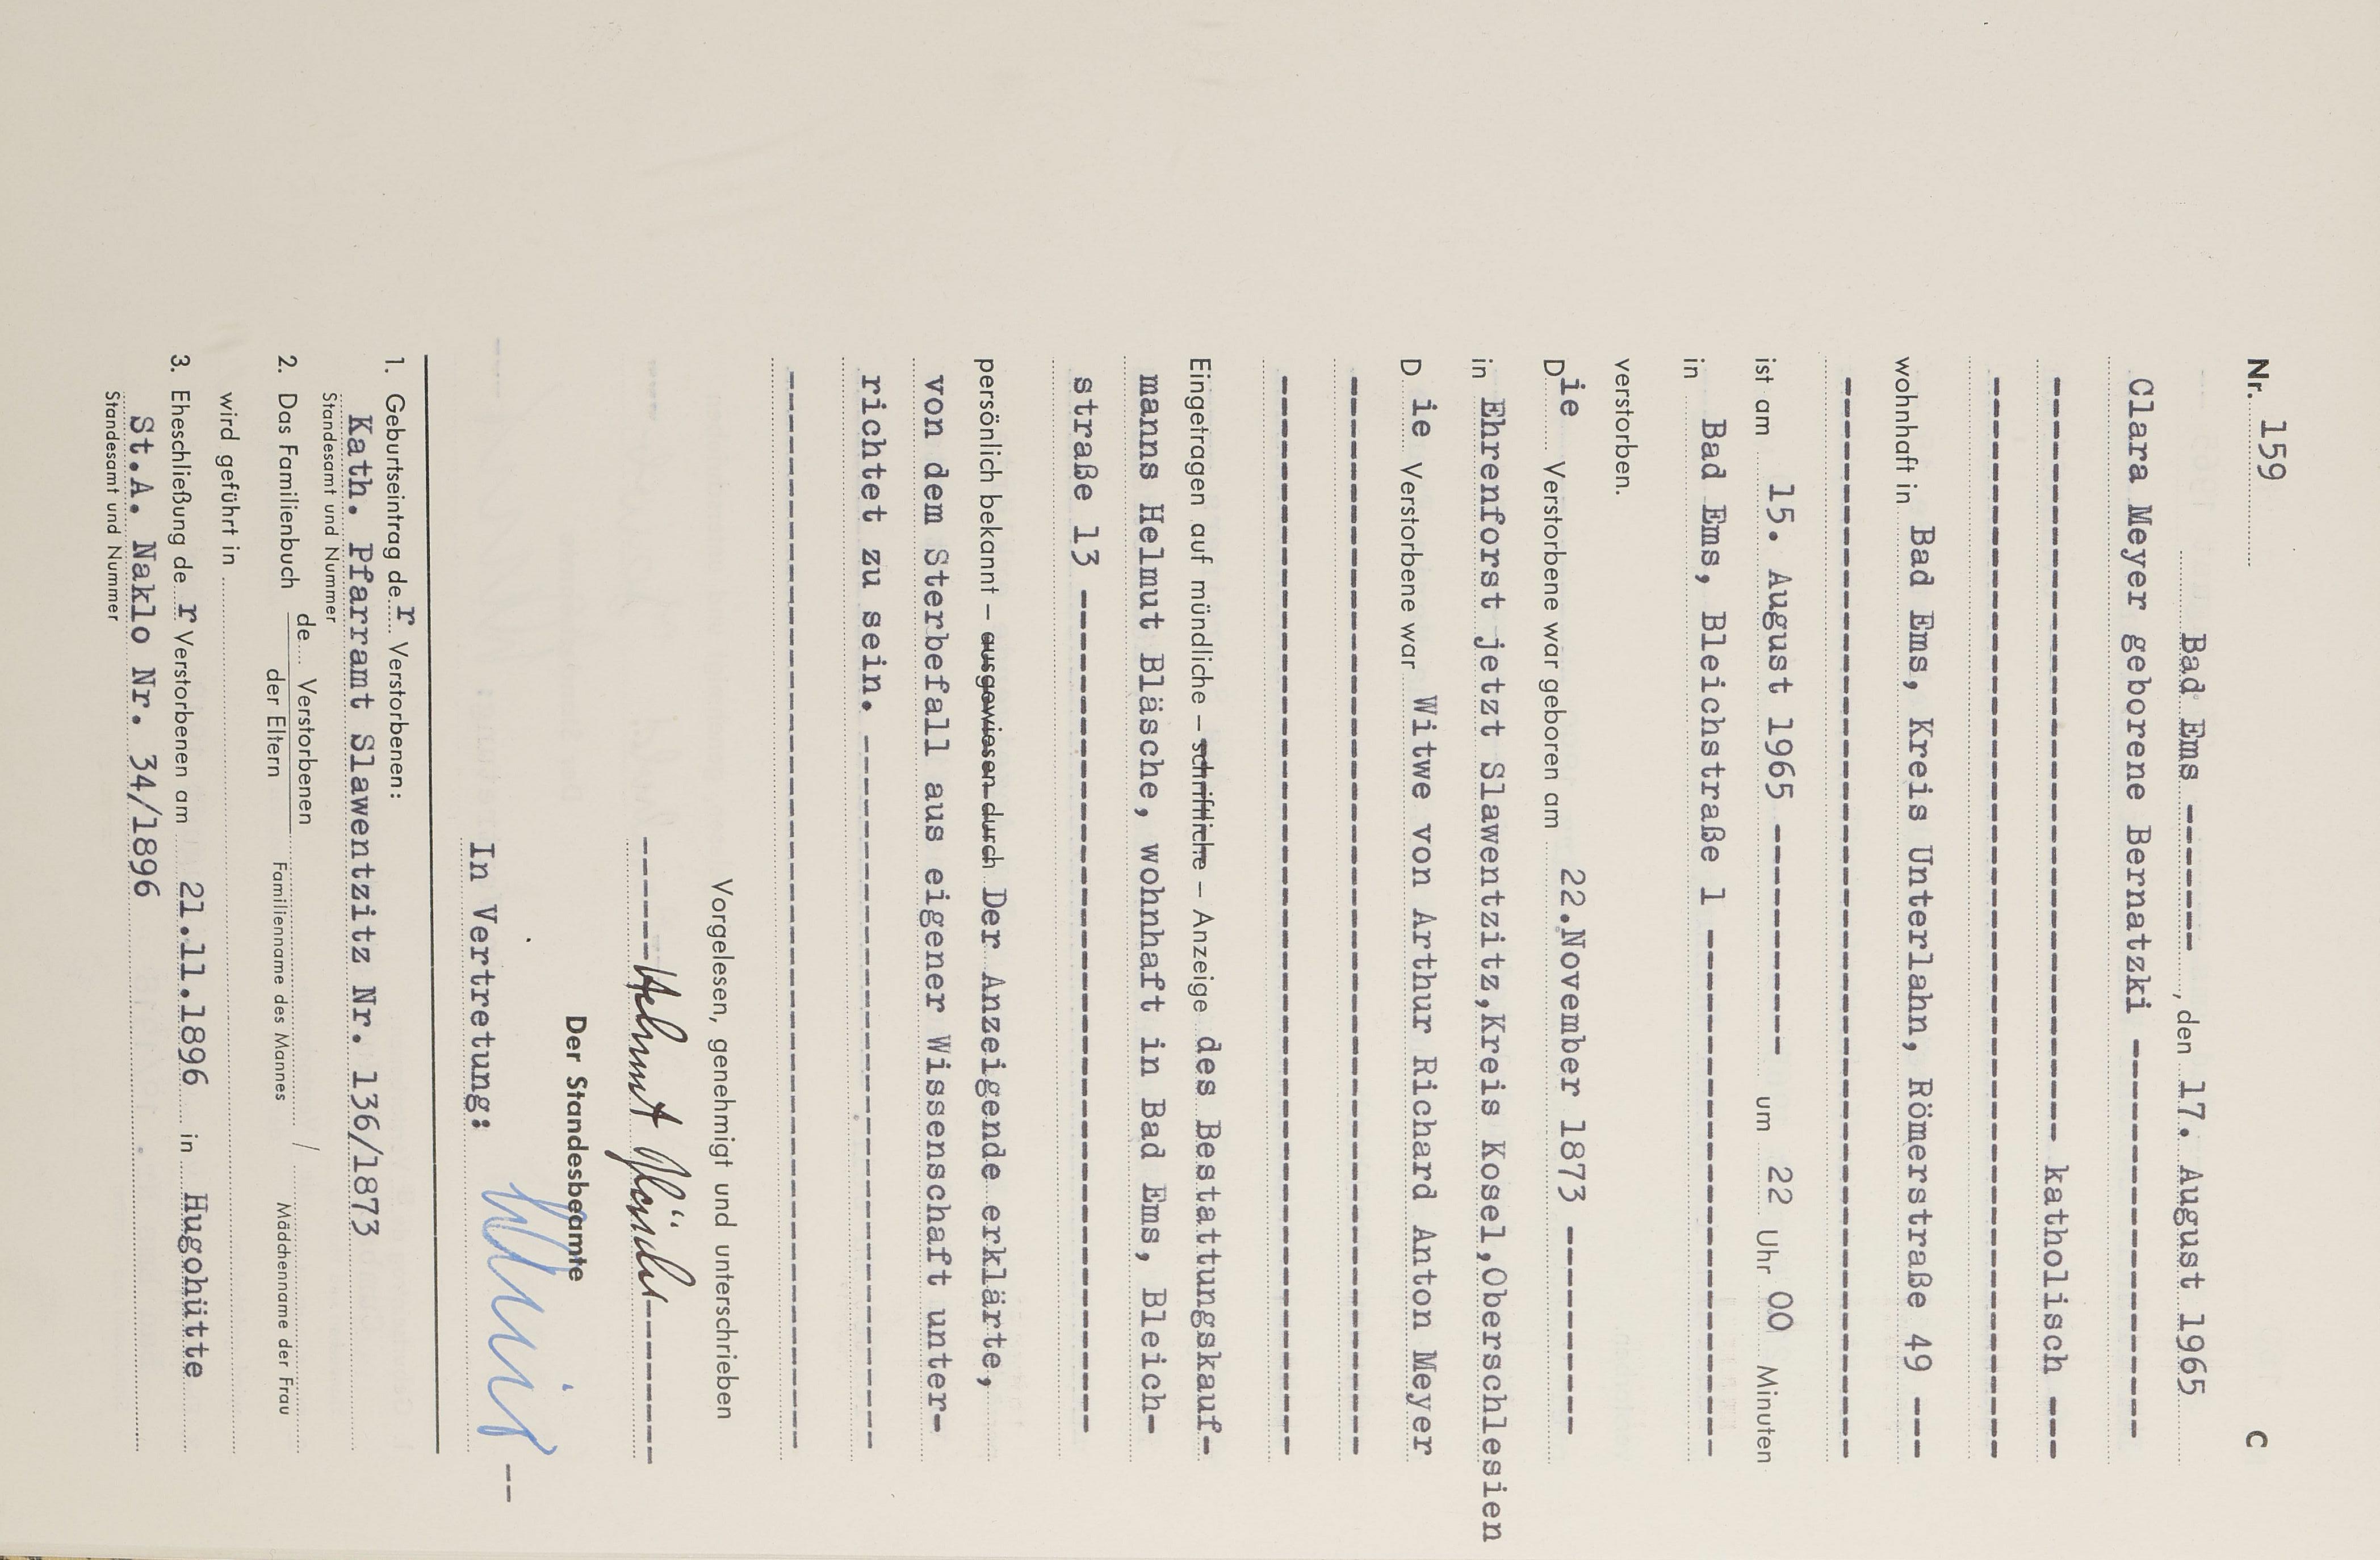 Nr. 159 C
Bad Ems -------, den 17. August 1965
Clara Meyer geborene Bernatzki -------------------
------------------------------------ katholisch ---
----------------------------------------------------
wohnhaft in Bad Ems, Kreis Unterlahn, Römerstraße 49 ---
----------------------------------------------------
ist am 15. August 1965 ----------- um 22 Uhr 00 Minuten
in Bad Ems, Bleichstraße 1 -------------------------
verstorben.
Die Verstorbene war geboren am 22.November 1873 ----------
in Ehrenforst jetzt Slawentzitz,Kreis Kosel,Oberschlesien
Die Verstorbene war Witwe von Arthur Richard Anton Meyer
----------------------------------------------------
----------------------------------------------------
Eingetragen auf mündliche – schriftliche – Anzeige des Bestattungskauf-
manns Helmut Bläsche, wohnhaft in Bad Ems, Bleich-
straße 13 ----------------------------------------
persönlich bekannt – ausgewiesen durch Der Anzeigende erklärte,
von dem Sterbefall aus eigener Wissenschaft unter-
richtet zu sein. ----------------------------------
----------------------------------------------------
Vorgelesen, genehmigt und unterschrieben
------Helmut Bläsche--------
Der Standesbeamte
In Vertretung: --
1. Geburtseintrag der Verstorbenen:
Kath. Pfarramt Slawentzitz Nr. 136/1873
Standesamt und Nummer
2. Das Familienbuch de Verstorbenen /
der Eltern Familienname des Mannes Mädchenname der Frau
wird geführt in
3. Eheschließung der Verstorbenen am 21.11.1896 in Hugohütte
St.A. Naklo Nr. 34/1896
Standesamt und Nummer